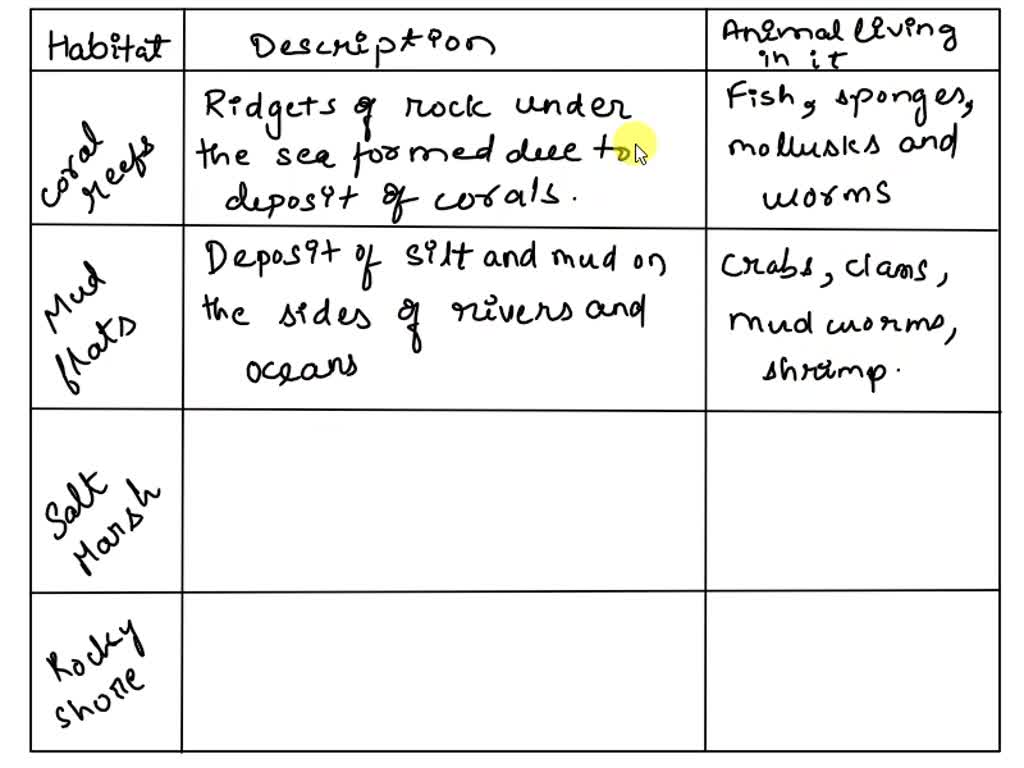 Habitat
Description
Animal living
in it
Coral
reefs
Ridgets of rock under
the sea formed due to
deposit of corals.
Fish, sponges,
mollusks and
worms
Mud
flats
Deposit of silt and mud on
the sides of rivers and
oceans
Crabs, clams,
mud worms,
shrimp.
Salt
Marsh
Rocky
shore